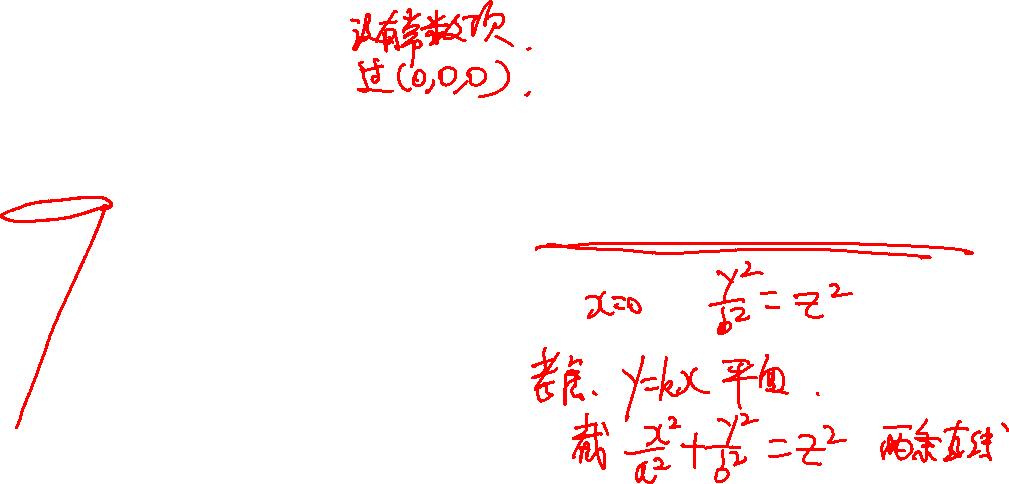 没有常数项.
过(0,0,0).
x=0 y²/b²=z²
考虑. y=kx 平面.
截 x²/a²+y²/b²=z² 两条直线